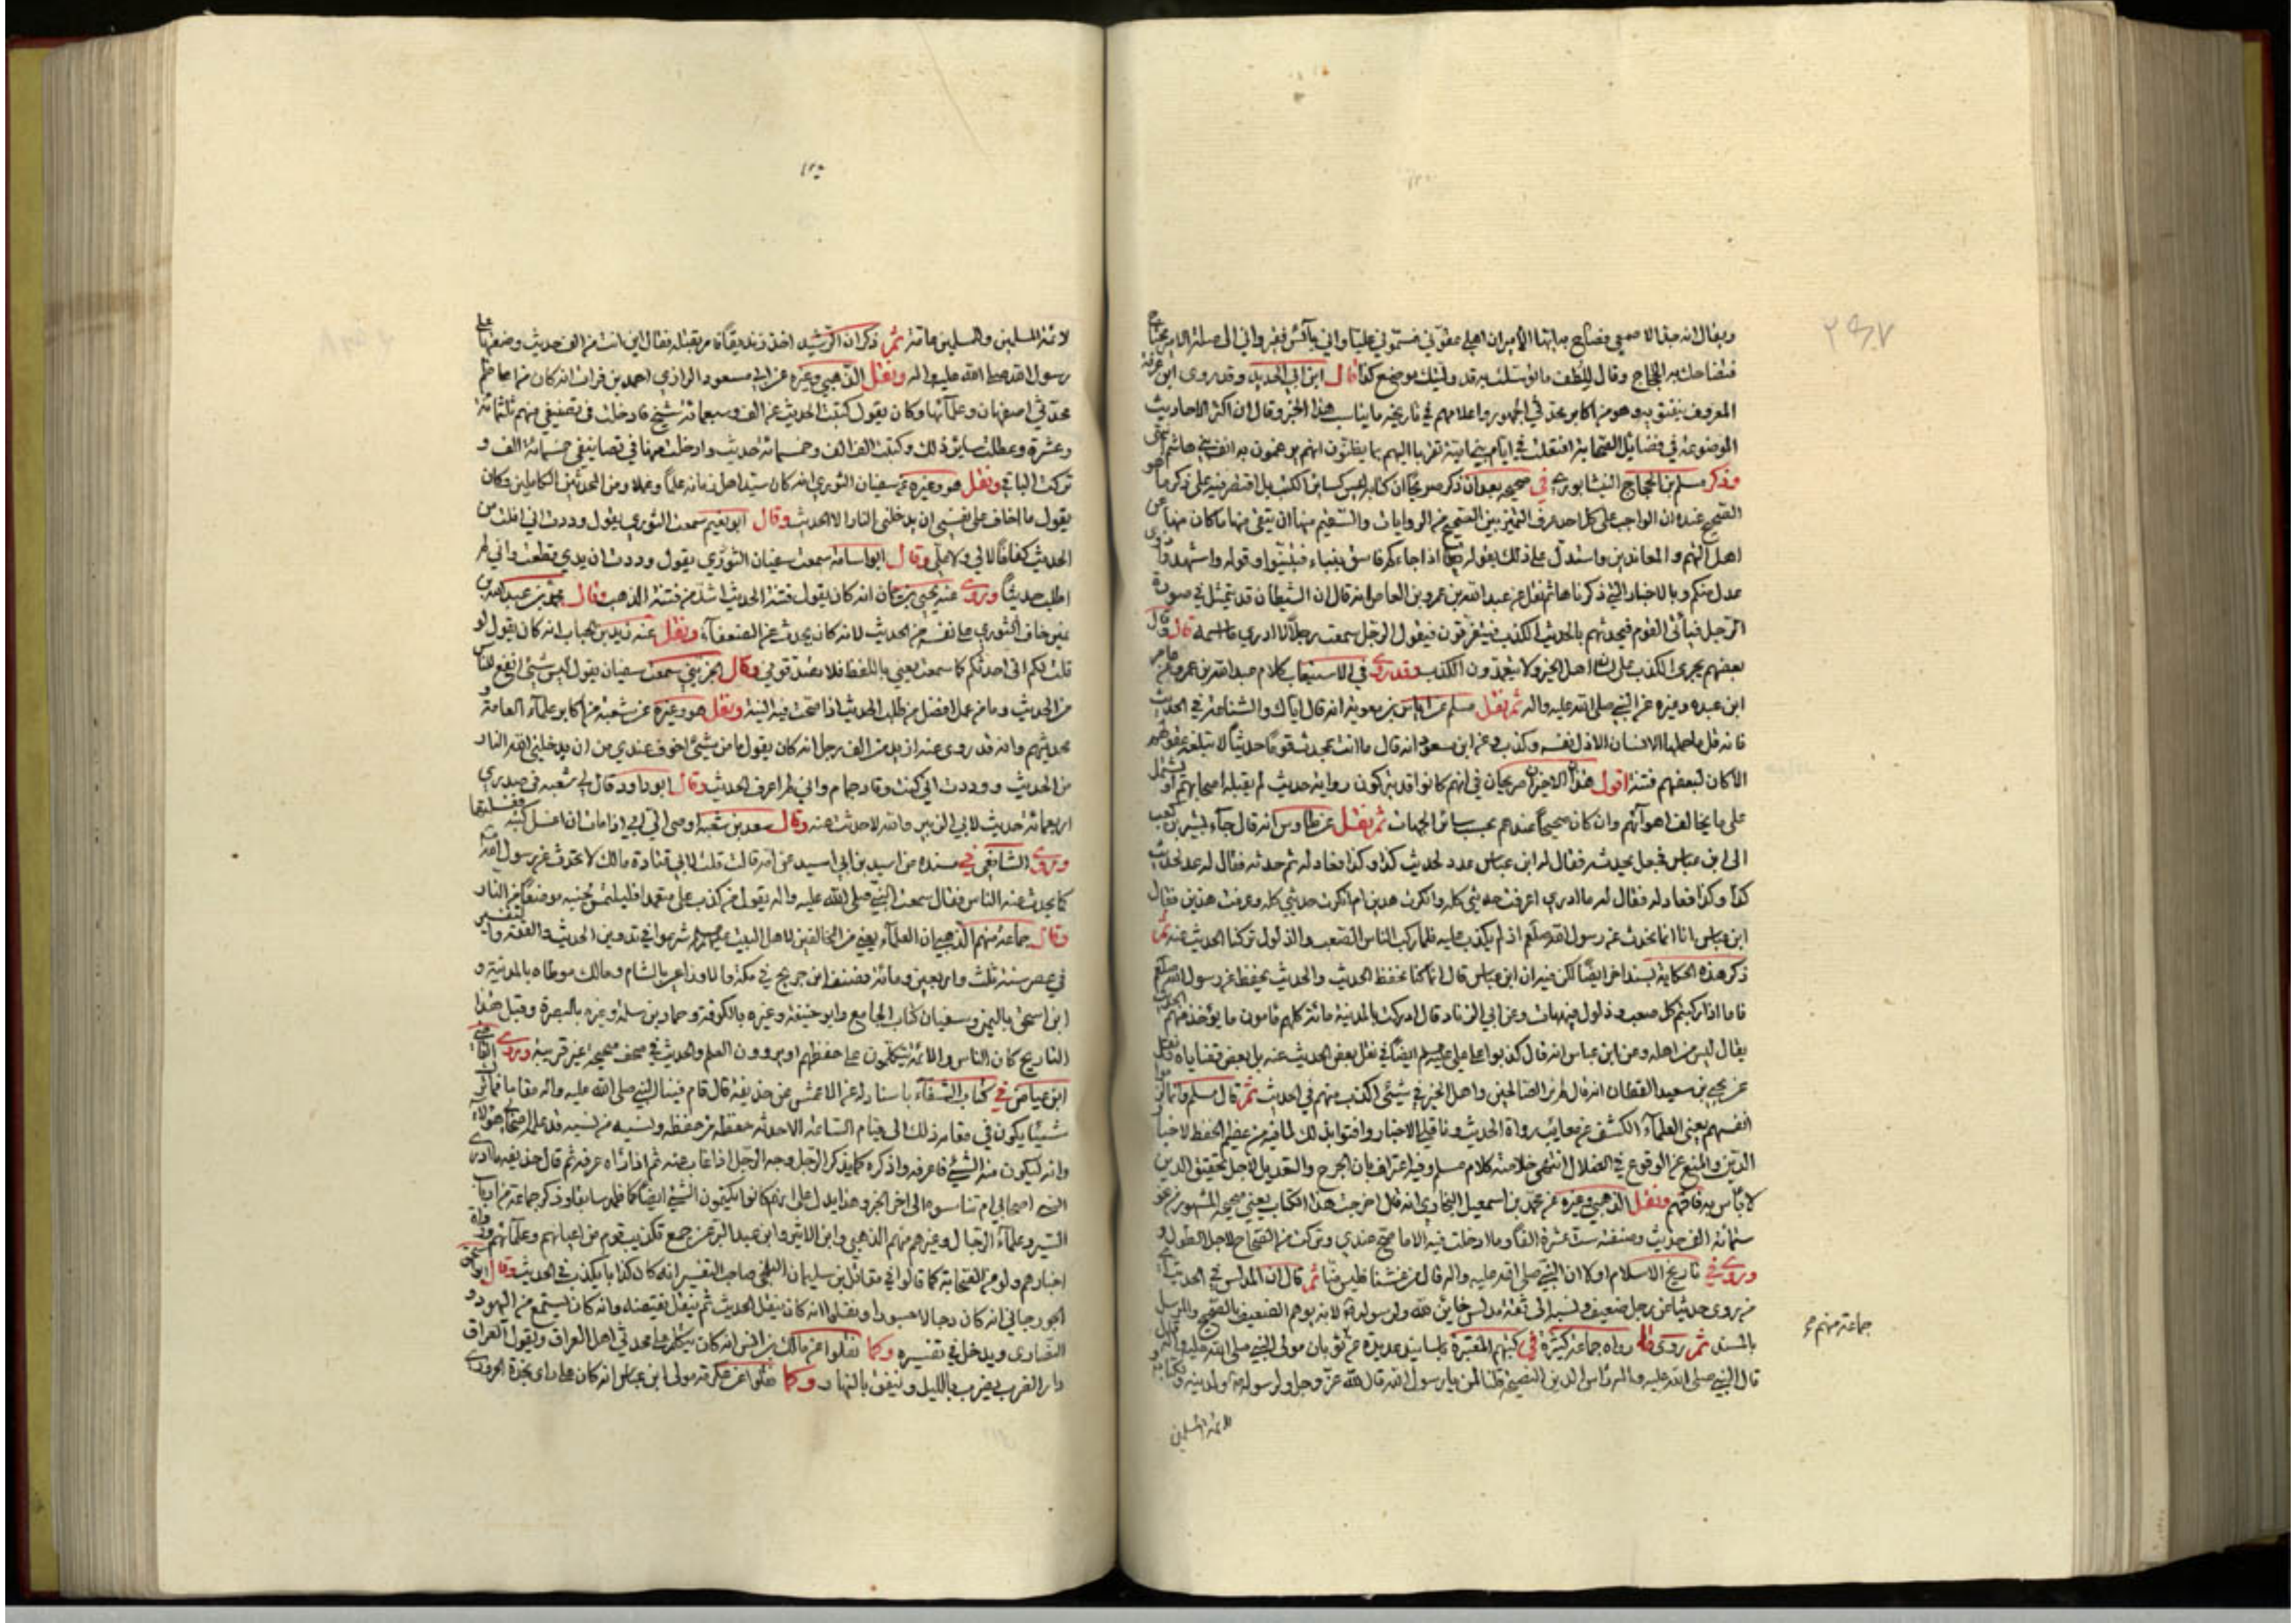 ويقال انه جد الاصمعي فصاح به ايها الامير ان اهلي عقوني فسموني عليا واني بائس فقير واني الى صلة الامير محتاج
فتضاحك به الحجاج وقال للطف ما توسلت به قد وليتك موضع كذا قال ابن ابي الحديد وقد روى ابن عرفة
المعروف بنفتويه وهو من اكابر محدثي الجمهور واعلامهم في تاريخه ما يناسب هذا الخبر وقال ان اكثر الاحاديث
الموضوعة في فضايل الصحابة افتعلت في ايام بني امية تقربا اليهم بما يظنون انهم يرغمون به انف بني هاشم انتهى
وذكر مسلم بن الحجاج النيشابوري في صحيحه بعد ان ذكر صريحا ان كتابه ليس كسائر الكتب بل اقتصر فيه على ذكر ما هو
الصحيح عنده ان الواجب على كل احد عرف التميز بين الصحيح من الروايات والسقيم منها ان يتقي منها ما كان منها عن
اهل التهم والمعاندين واستدل على ذلك بقوله تعالى اذا جاءكم فاسق بنباء فتبينوا وقوله واشهدوا ذوى
عدل منكم وبالاخبار التي ذكرناها ثم نقل عن عبد الله بن عمرو بن العاص انه قال ان الشيطان قد يتمثل في صورة
الرجل فيأتي القوم فيحدثهم بالحديث الكذب فيتفرقون فيقول الرجل سمعت رجلا لا ادري ما اسمه قال وقال
بعضهم يجري الكذب على لسان اهل الخير ولا يتعمدون الكذب وقد روى في الاستيعاب كلام عبد الله بن عمرو عامر
ابن عبده وغيره عن النبي صلى الله عليه واله ثم نقل مسلم عن اياس بن معوية انه قال اياك والشناعة في الحديث
فانه قل ما حملها الانسان الا ذل نفسه وكذب وعن ابن مسعود انه قال ما انت بمحدث قوما حديثا لا تبلغه عقولهم
الا كان لبعضهم فتنة اقول هذان الاخيران صريحان في انهم كانوا قد يتركون رواية حديث لم يقبله اصحابهم او يشتمل
على ما يخالف اهوائهم وان كان صحيحا عندهم بحسب سائر الجهات ثم نقل عن طاوس انه قال جاء بشير بن كعب
الى ابن عباس فجعل يحدثه فقال له ابن عباس عد لحديث كذا وكذا فعاد له ثم حدثه فقال له عد لحديث
كذا وكذا فعاد له فقال له ما ادري اعرفت حديثي كله وانكرت هذين ام انكرت حديثي كله وعرفت هذين فقال
ابن عباس انا انما نحدث عن رسول الله صلعم اذ لم يكذب عليه فلما ركب الناس الصعب والذلول تركنا الحديث عنه ثم
ذكر هذه الحكاية بسند اخر ايضا لكن فيه ان ابن عباس قال انما كنا نحفظ الحديث والحديث يحفظ عن رسول الله صلعم
فاما اذا ركبتم كل صعب وذلول فهيهات وعن ابي الزناد قال ادركت بالمدينة مائة كلهم مأمون ما يؤخذ منهم الحديث
يقال ليس من اهله وعن ابن عباس انه قال كذبوا على علي عليه السلم ايضا في نقل بعض الحديث عنه بل بعض قضاياه ونقل
عن يحيى بن سعيد القطان انه قال لم نر الصالحين واهل الخير في شيئ اكذب منهم في الحديث ثم قال مسلم وانما الزموا
انفسهم يعني العلماء الكشف عن معايب رواة الحديث وناقلي الاخبار وافتوا بذلك لما فيه من عظيم الحفظ لاخبار
الدين والمنع عن الوقوع في الضلال انتهى خلاصة كلام مسلم وفيه اعتراف بان الجرح والتعديل لاجل تحقيق الدين
لا بأس به فافهم ونقل الذهبي وغيره عن محمد بن اسمعيل البخاري انه قال اخرجت هذا الكتاب يعني صحيحه المشهور من نحو
ستمائة الف حديث وصنفته ست عشرة الفا وما ادخلت فيه الا ما صح عندي وتركت من الصحاح لاجل الطول و
وروى في تاريخ الاسلام اولا ان النبي صلى الله عليه واله قال من غشنا فليس منا ثم قال ان المدلس في الحديث
من يروى حديثا عن رجل ضعيف ونسبه الى ثقة مدلس خاين لله ولرسوله لانه يوهم الضعيف بالصحيح والمرسل
بالمسند ثم روى رواه جماعة كثيرة في كتبهم المعتبرة باسانيد عديدة عن ثوبان مولى النبي صلى الله عليه واله
قال النبي صلى الله عليه واله رأس الدين النصيحة قلنا لمن يا رسول الله قال لله عز وجل ولرسوله ولدينه ولكتابه
جماعة منهم
لائمة المسلمين
لائمة المسلمين والمسلمين عامة ثم ذكر ان الرشيد اخذ زنديقا فامر بقتله فقال اين انت من الف حديث وضعتها على
رسول الله صلى الله عليه واله ونقل الذهبي وغيره عن ابي مسعود الرازي احمد بن فرات انه كان من اعاظم
محدثي اصفهان وعلمائها وكان يقول كتبت الحديث عن الف وسبعمائة شيخ فادخلت في تصنيفي منهم ثلثمائة
وعشرة وعطلت سائر ذلك وكتبت الف الف وخمسمائة حديث وادخلت منها في تصانيفي خمسمائة الف و
تركت الباقي ونقل هو وغيره عن سفيان الثوري انه كان سيد اهل زمانه علما وعملا ومن المحدثين الكاملين وكان
يقول ما اخاف على نفسي ان يدخلني النار الا الحديث وقال ابو نعيم سمعت الثوري يقول وددت اني افلت من
الحديث كفافا لا لي ولا علي وقال ابو اسامة سمعت سفيان الثوري يقول وددت ان يدي قطعت واني لم
اطلب حديثا وروى عنه يحيى بن يمان انه كان يقول فتنة الحديث اشد من فتنة الذهب وقال محمد بن عبد الله بن
نمير خاف الثوري على نفسه من الحديث لانه كان يحدث عن الضعفاء ونقل عنه زيد بن الحباب انه كان يقول لو
قلت لكم اني احدثكم كما سمعت يعني باللفظ فلا تصدقوني وقال الخريبي سمعت سفيان يقول ليس شئ انفع للناس
من الحديث وما من عمل افضل من طلب الحديث اذا صحت فيه النية ونقل هو وغيره عن شعبة من اكابر علماء العامة و
محدثيهم وانه قد روى عنه ازيد من الف رجل انه كان يقول ما من شئ اخوف عندي من ان يدخلني الله النار
من الحديث ووددت اني كنت وقاد حمام واني لم اعرف الحديث وقال ابو داود قال لي شعبة في صدري
اربعمائة حديث لابي الزبير والله لا حدثت عنه وقال سعد بن شعبة اوصى الي ابي اذا مات ان اغسل كتبه فغسلتها
وروى الشافعي في مسنده عن اسيد بن ابي اسيد عن امه قالت قلت لابي قتادة مالك لا تحدث عن رسول الله
كما يحدث عنه الناس فقال سمعت النبي صلى الله عليه واله يقول من كذب على متعمدا فليلتمس لجنبه موضعا من النار
وقال جماعة منهم الذهبي ان العلماء يعني من المخالفين لاهل البيت عليهم السلم شرعوا في تدوين الحديث والفقه والتفسير
في عصر سنة ثلث واربعين ومائة فصنف ابن جريج في مكة والاوزاعي بالشام ومالك موطاه بالمدينة و
ابن اسحق باليمن وسفيان كتاب الجامع وابو حنيفة وغيره بالكوفة وحماد بن سلمة وغيره بالبصرة وقبل هذا
التاريخ كان الناس والائمة يتكلمون على حفظهم او يروون العلم والحديث في صحف صحيحة غير مرتبة وروى القاضي
ابن عياض في كتاب الشفاء باسناد له عن الاعمش عن حذيفة قال قام فينا النبي صلى الله عليه واله مقاما فما ترك
شيئا يكون في مقامه ذلك الى قيام الساعة الا حدثه حفظه من حفظه ونسيه من نسيه قد علمه اصحابي هؤلاء
وانه ليكون منه الشئ فاعرفه واذكره كما يذكر الرجل وجه الرجل اذا غاب عنه ثم اذا راه عرفه ثم قال حذيفة ما ادري
انسي اصحابي ام تناسوه الى اخر الخبر وهذا يدل على انهم كانوا يكتمون الشئ ايضا كما ظهر سابقا وذكر جماعة من ارباب
السير وعلماء الرجال وغيرهم منهم الذهبي وابن الاثير وابن عبد البر عن جمع تكذيب قوم من اعيانهم وعلمائهم ورواة
اخبارهم ولو من الصحابة كما قالوا في مقاتل بن سليمان البلخي صاحب التفسير انه كان كذابا يكذب في الحديث وقال ابو اسحق
الجورجاني انه كان دجالا جسورا ونقلوا انه كان ينقل الحديث ثم ينقل نقيضه وانه كان يستمع من اليهود و
النصارى ويدخل في تفسيره وكما نقلوا عن مالك بن انس انه كان يتكلم على محدثي اهل العراق ويقول العراق
دار الضرب يضرب بالليل وينفق بالنهار وكما نقلوا عن عكرمة مولى ابن عباس انه كان على راى نجدة الحروري